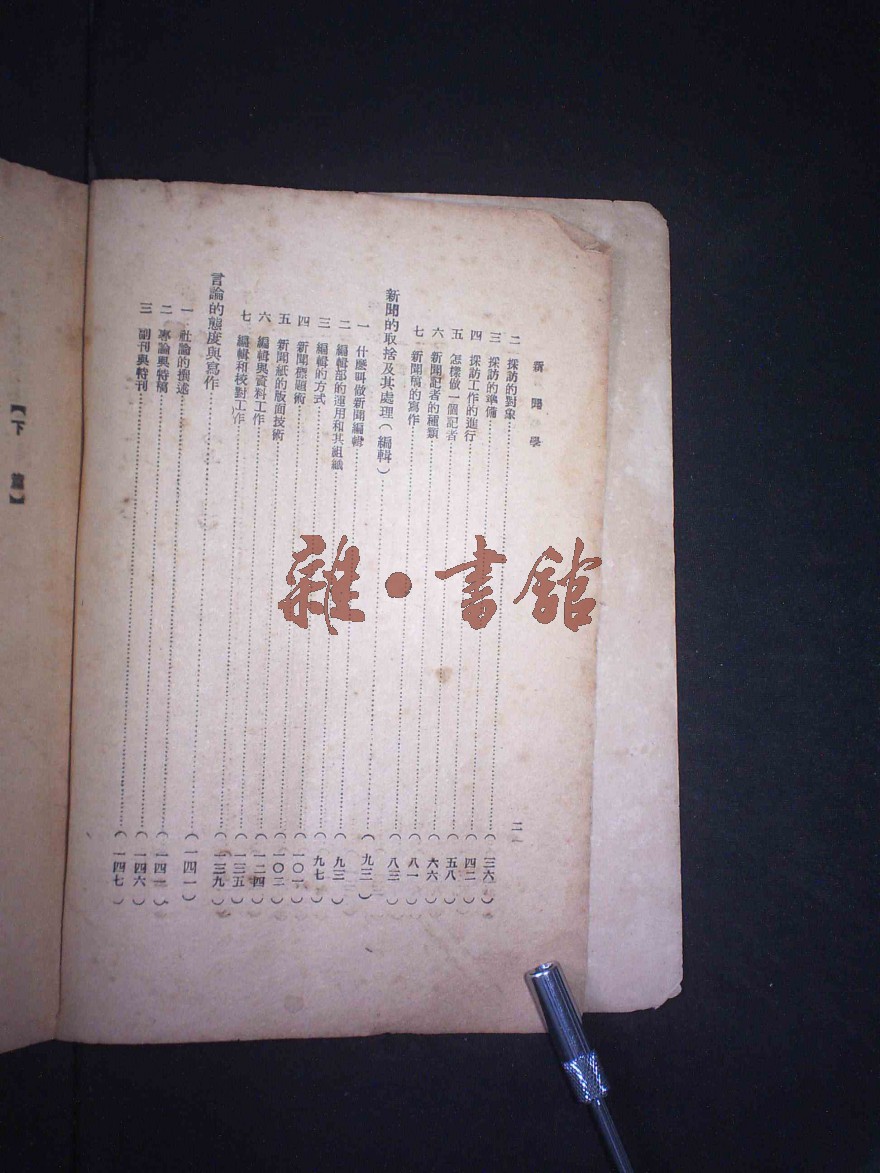 新聞學 二
二 採訪的對象……(三六)
三 採訪的準備……(四二)
四 採訪工作的進行……(五八)
五 怎樣做一個記者……(六六)
六 新聞記者的種類……(八一)
七 新聞稿的寫作……(八三)
新聞的取捨及其處理(編輯)……(九三)
一 什麼叫做新聞編輯……(九三)
二 編輯部的運用和其組織……(九七)
三 編輯的方式……(一〇一)
四 新聞標題術……(一〇二)
五 新聞紙的版面技術……(一二四)
六 編輯與資料工作……(一三五)
七 編輯和校對工作……(一三九)
言論的態度與寫作……(一四一)
一 社論的撰述……(一四一)
二 專論與特稿……(一四六)
三 副刊與特刊……(一四七)
【下篇】
雜·書館